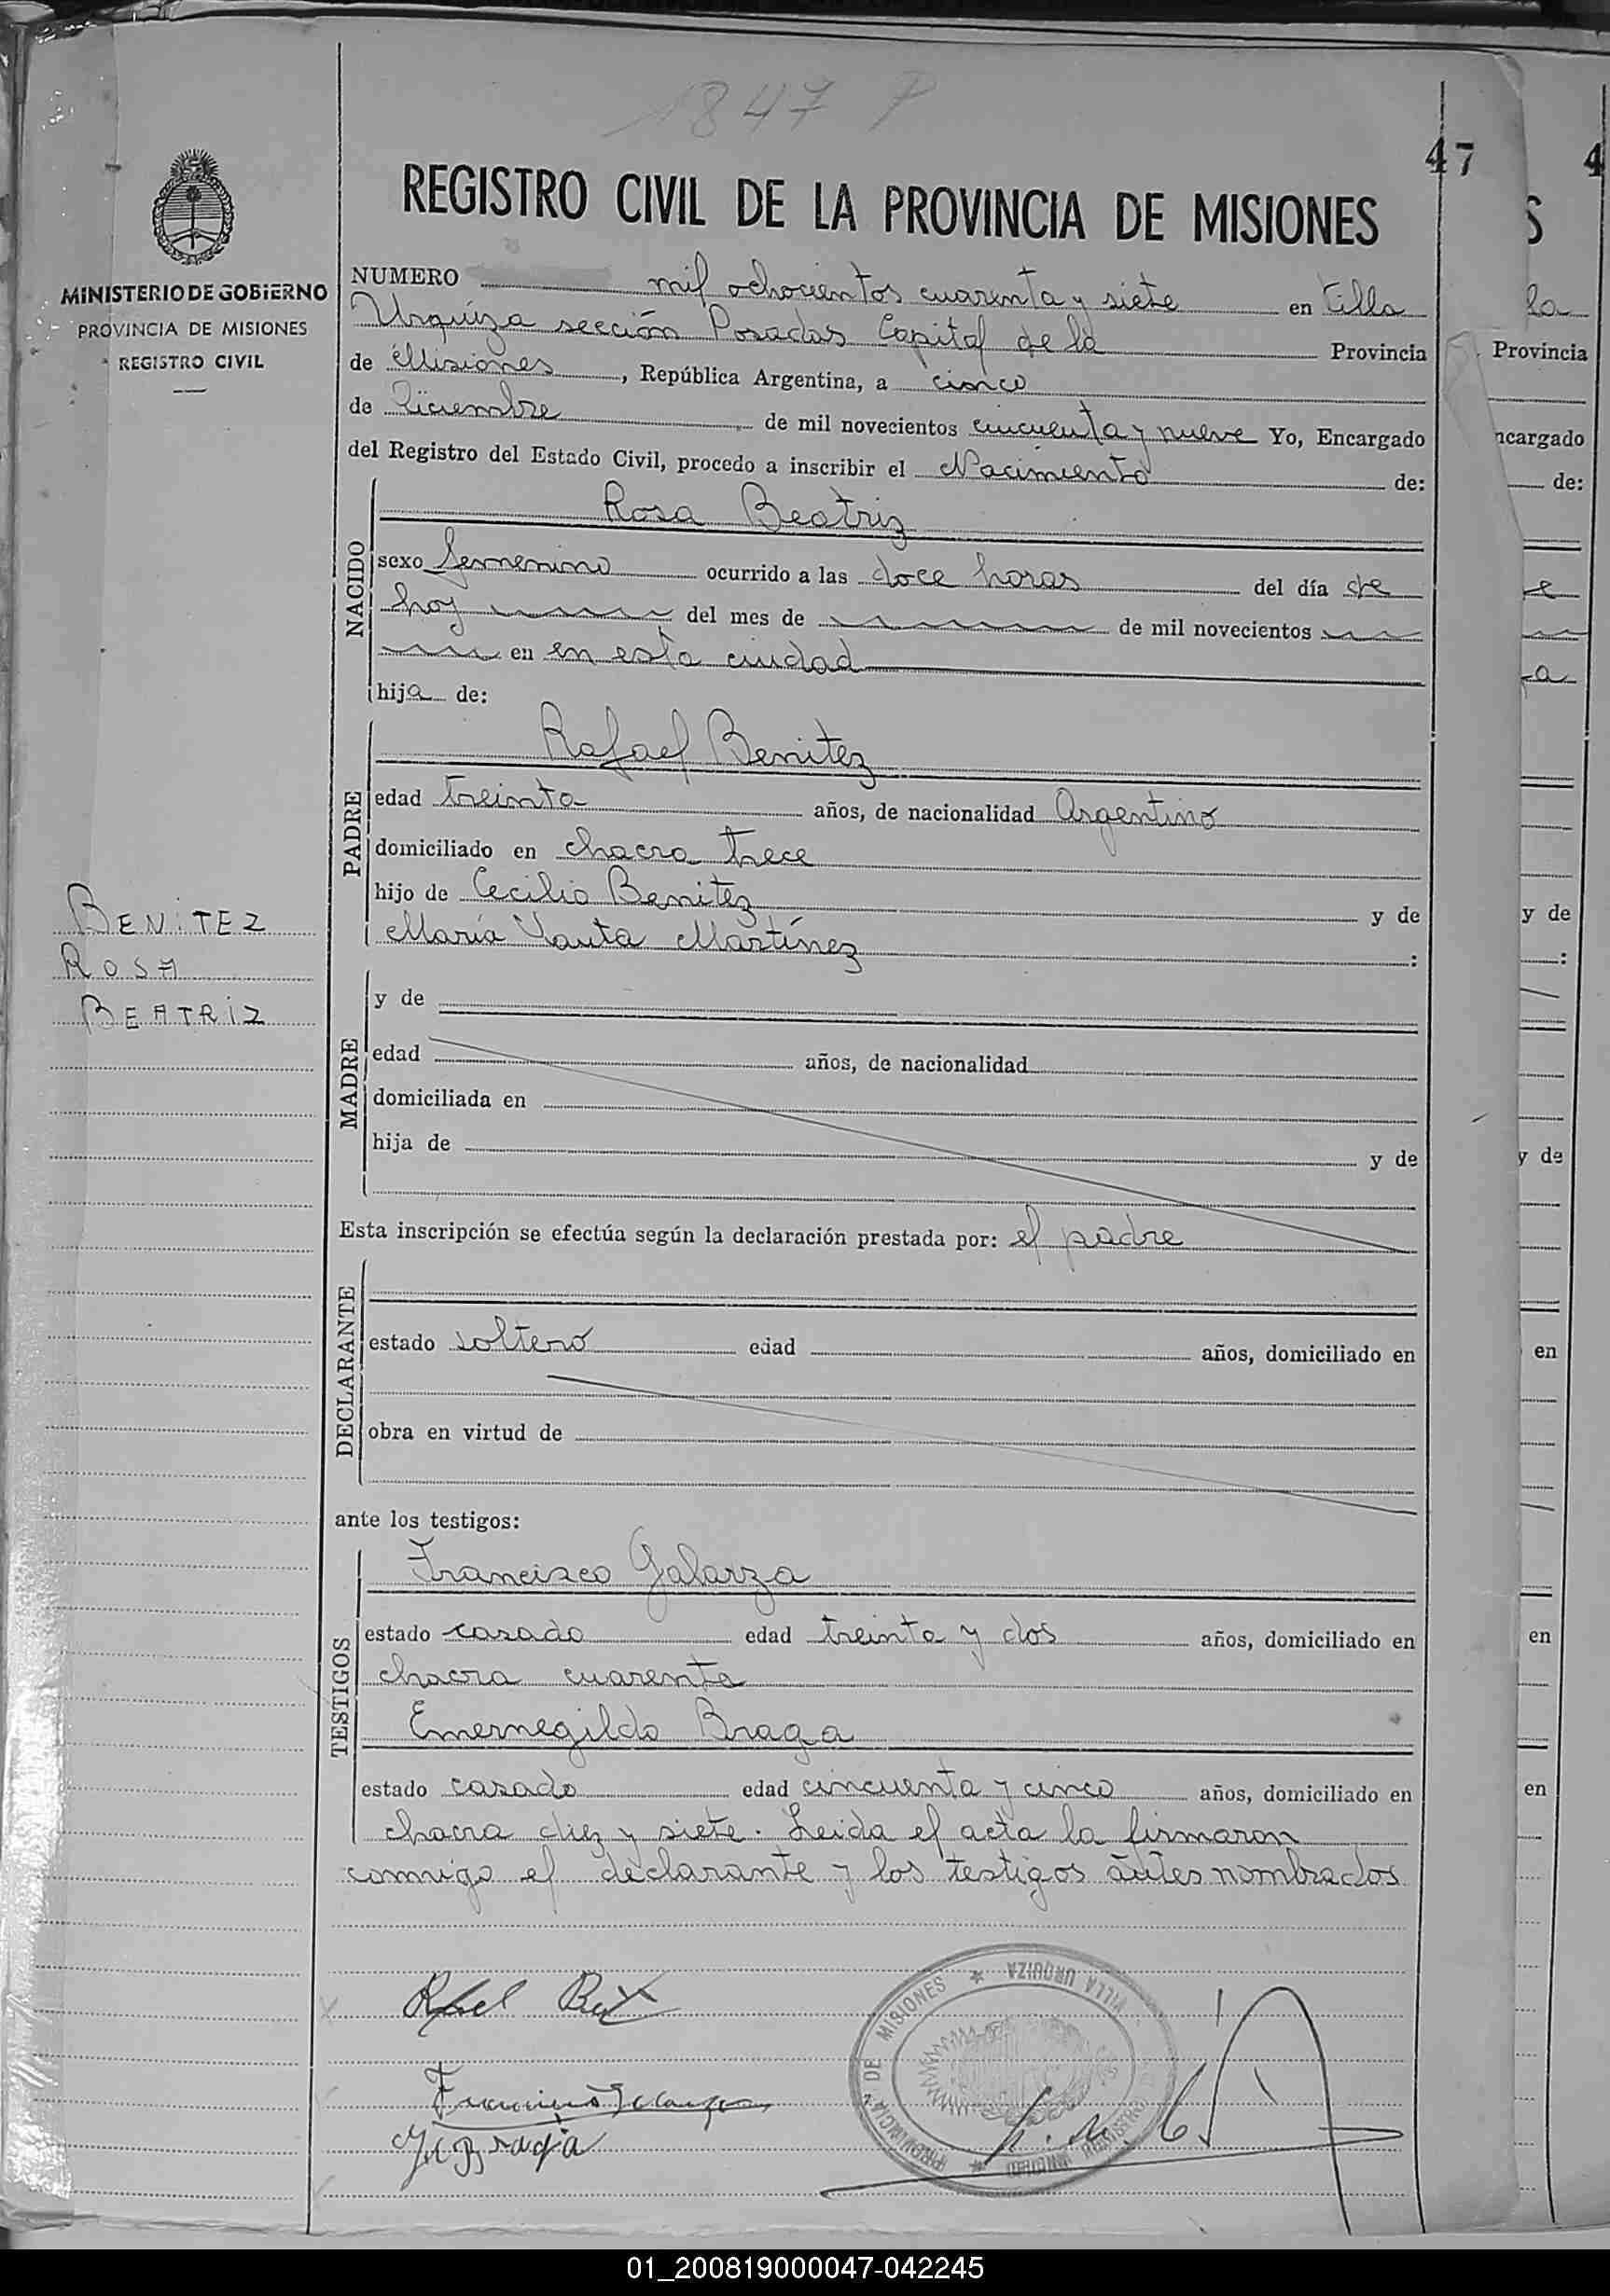 1847 P
47
4
REGISTRO CIVIL DE LA PROVINCIA DE MISIONES
S
MINISTERIO DE GOBIERNO
PROVINCIA DE MISIONES
REGISTRO CIVIL
NUMERO mil ochocientos cuarenta y siete en Villa
la
Urquiza sección Posadas Capital de la Provincia
Provincia
de Misiones, República Argentina, a cinco
de Diciembre de mil novecientos cincuenta y nueve Yo, Encargado
ncargado
del Registro del Estado Civil, procedo a inscribir el Nacimiento de:
de:
NACIDO
Rosa Beatriz
sexo femenino ocurrido a las doce horas del día de
e
hoy del mes de de mil novecientos
en en esta ciudad
a
hija de:
PADRE
Rafael Benitez
edad treinta años, de nacionalidad Argentino
domiciliado en chacra trece
hijo de Cecilio Benitez y de
y de
María Martínez :
:
BENITEZ
ROSA
BEATRIZ
MADRE
y de
edad años, de nacionalidad
domiciliada en
hija de y de
y de
Esta inscripción se efectúa según la declaración prestada por: el padre
DECLARANTE
estado soltero edad años, domiciliado en
en
obra en virtud de
ante los testigos:
TESTIGOS
Francisco Galarza
estado casado edad treinta y dos años, domiciliado en
en
chacra cuarenta
Emernegildo Braga
estado casado edad cincuenta y cinco años, domiciliado en
en
chacra diez y siete. Leida el acta la firmaron
conmigo el declarante y los testigos antes nombrados
PROVINCIA DE MISIONES * VILLA URQUIZA *
01_200819000047-042245